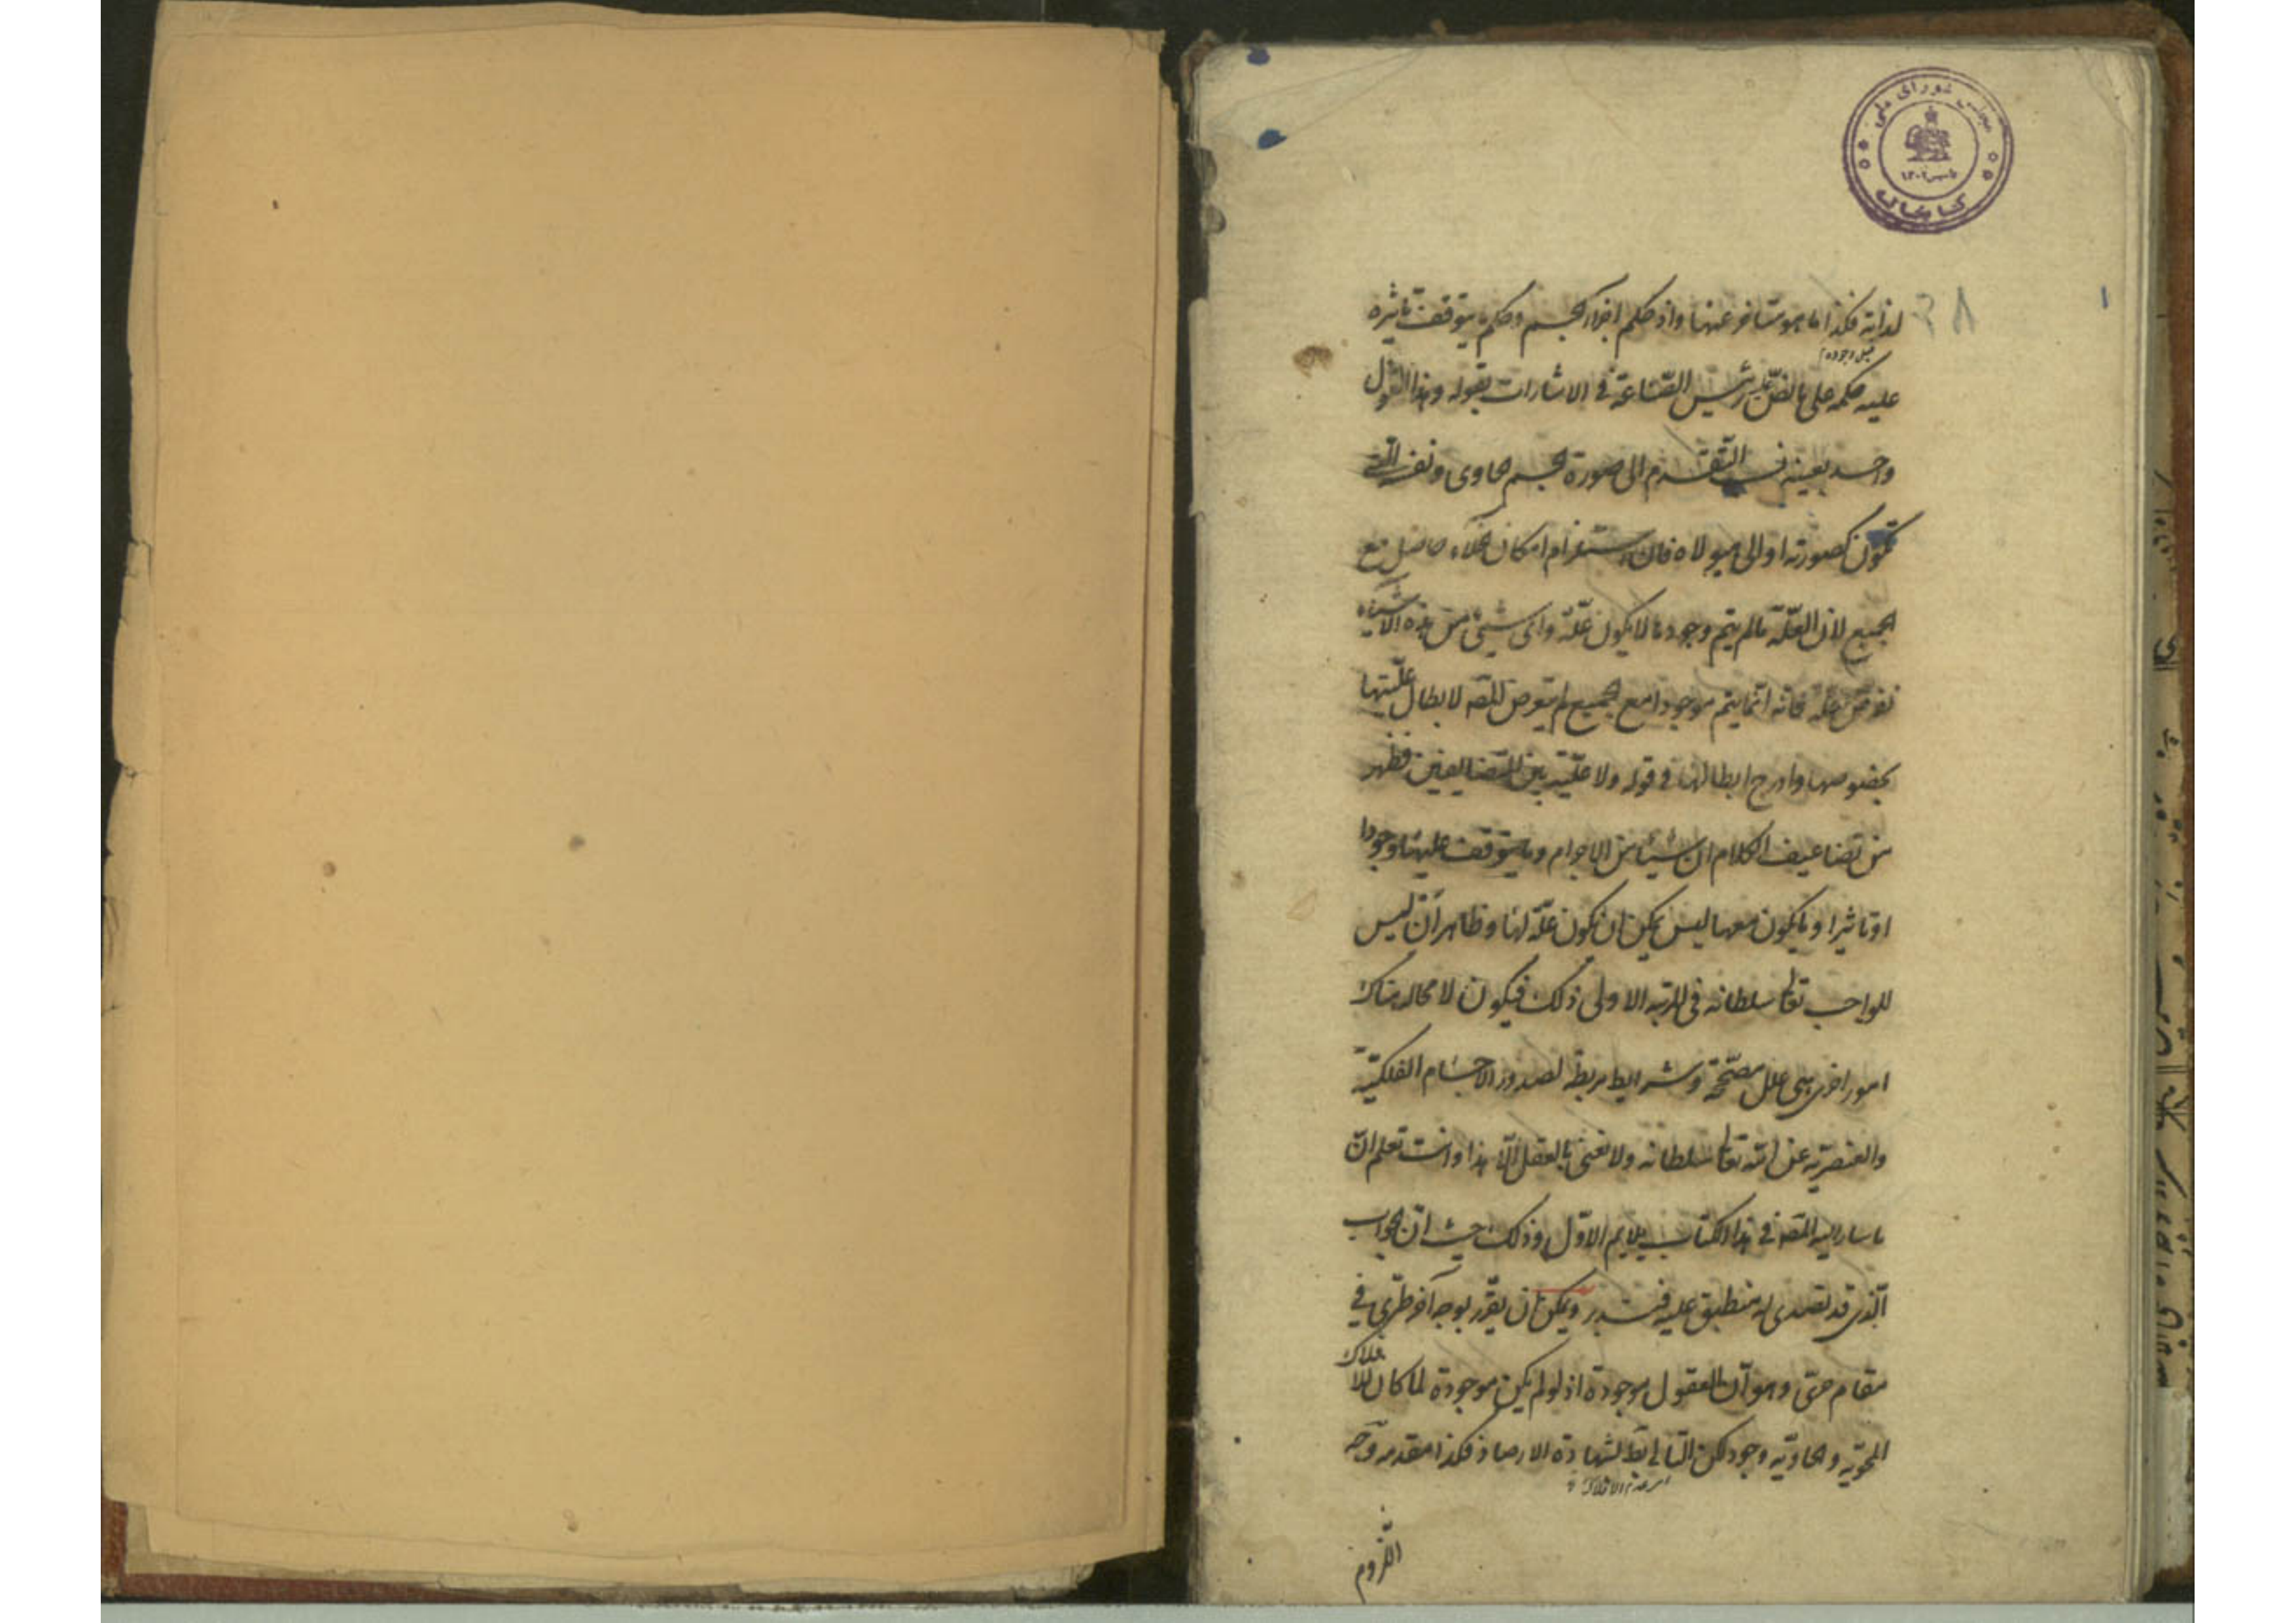 مجلس شورای ملی
تاسیس ۱۳۰۲
کتابخانه
لذاته فكذا ما هو متاخر عنها واذ حكم اجزاء الجسم وحكم ما يتوقف تاثيره
قبل وجوده
عليه حكمه على ما نص عليه رئيس الصناعة في الاشارات بقوله وهذا القول
واحد بعينه في التقدم الى صورة الجسم الحاوى ونفسه التى
تكون كصورته او الى هيولاه فان استلزام امكان الخلاء حاصل مع
الجميع لان العلّة ما لم يتم وجودها لا يكون علّة واى شيئ من هذه الاشياء
نفرض علة فانه انما يتم موجودا مع الجميع لم يتعرض المصه لابطال علّيتها
بخصوصها وادرج ابطالها في قوله ولا علّية بين المتضايفين فظهر
من تضاعيف الكلام ان شيئا من الاجرام وما يتوقف عليها وجودا
او تاثيرا وما يكون معها ليس يمكن ان يكون علّة لها وظاهر ان ليس
للواجب تعالى سلطانه في المرتبه الاولى ذلك فيكون لا محاله هناك
امور اخرى هى علل مصحّحة وشرايط مربطة لصدور الاجسام الفلكيّة
والعنصريّه عن الله تعالى سلطانه ولا نعنى بالعقل الّا هذا وانت تعلم انّ
ما سار اليه المصه في هذا الكتاب يلايم الاوّل وذلك حيث انّ الجواب
الّذى قد تصدى له منطبق عليه فتدبر ويمكن ان يقرّر بوجه آخر طرى في
مقام حتى وهو انّ العقول موجودة اذ لو لم يكن موجودة لما كان للافلاك
المحويّه والحاويّه وجود لكن التالى بط لشهادة الارصاد فكذا مقدمه وجه
اللّزوم